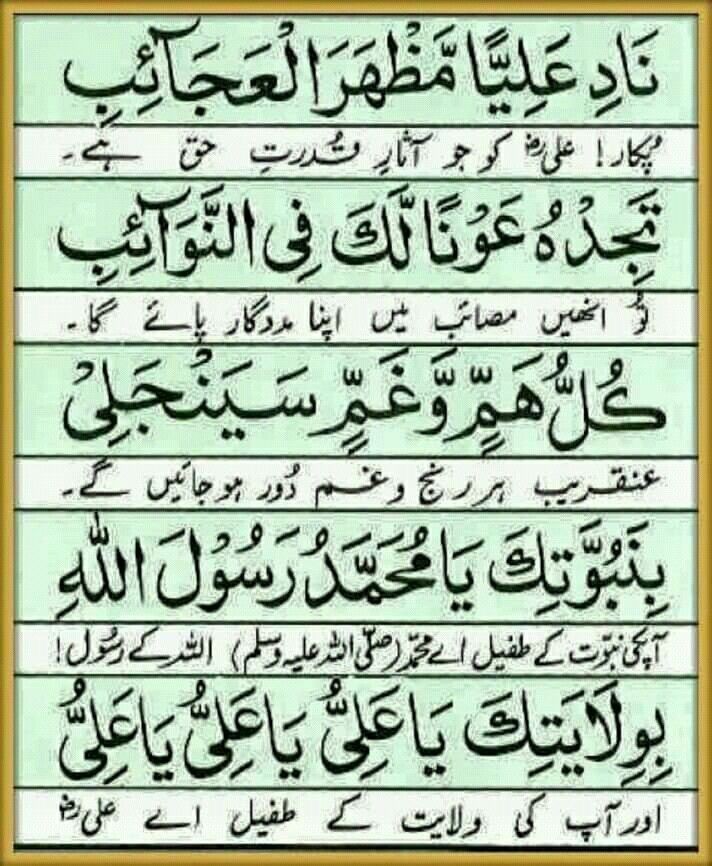 نَادِ عَلِيًّا مَّظْهَرَ الْعَجَآئِبِ
پُکار! علیؓ کو جو آثارِ قدرتِ حق ہے۔
تَجِدْهُ عَوْنًا لَّكَ فِي النَّوَآئِبِ
تُو انھیں مصائب میں اپنا مددگار پائے گا۔
كُلُّ هَمٍّ وَّغَمٍّ سَيَنْجَلِيْ
عنقریب ہر رنج و غم دُور ہو جائیں گے۔
بِنَبُوَّتِكَ يَا مُحَمَّدُ رَسُوْلَ اللهِ
آپکی نبوّت کے طفیل اے محمّد (صلّی اللہ علیہ وسلم) اللہ کے رسُول!
بِوِلَايَتِكَ يَا عَلِيُّ يَا عَلِيُّ يَا عَلِيُّ
اور آپ کی ولایت کے طفیل اے علیؓ